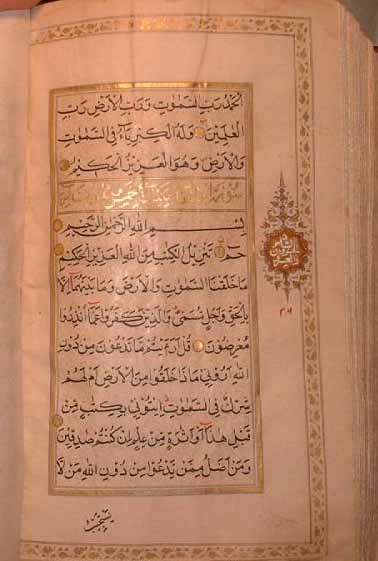 الحمد رب السموات ورب الأرض رب
العلمين وله الكبرياء في السموات
والأرض وهو العزيز الحكيم
بسم الله الرحمن الرحيم
حم تنزيل الكتب من الله العزيز الحكيم
ما خلقنا السموات والأرض وما بينهما إلا
بالحق وأجل مسمى والذين كفروا عما أنذروا
معرضون قل أرءيتم ما تدعون من دون
الله أروني ماذا خلقوا من الأرض أم لهم
شرك في السموات ائتوني بكتب من
قبل هذا أو أثرة من علم إن كنتم صدقين
ومن أضل ممن يدعوا من دون الله من لا